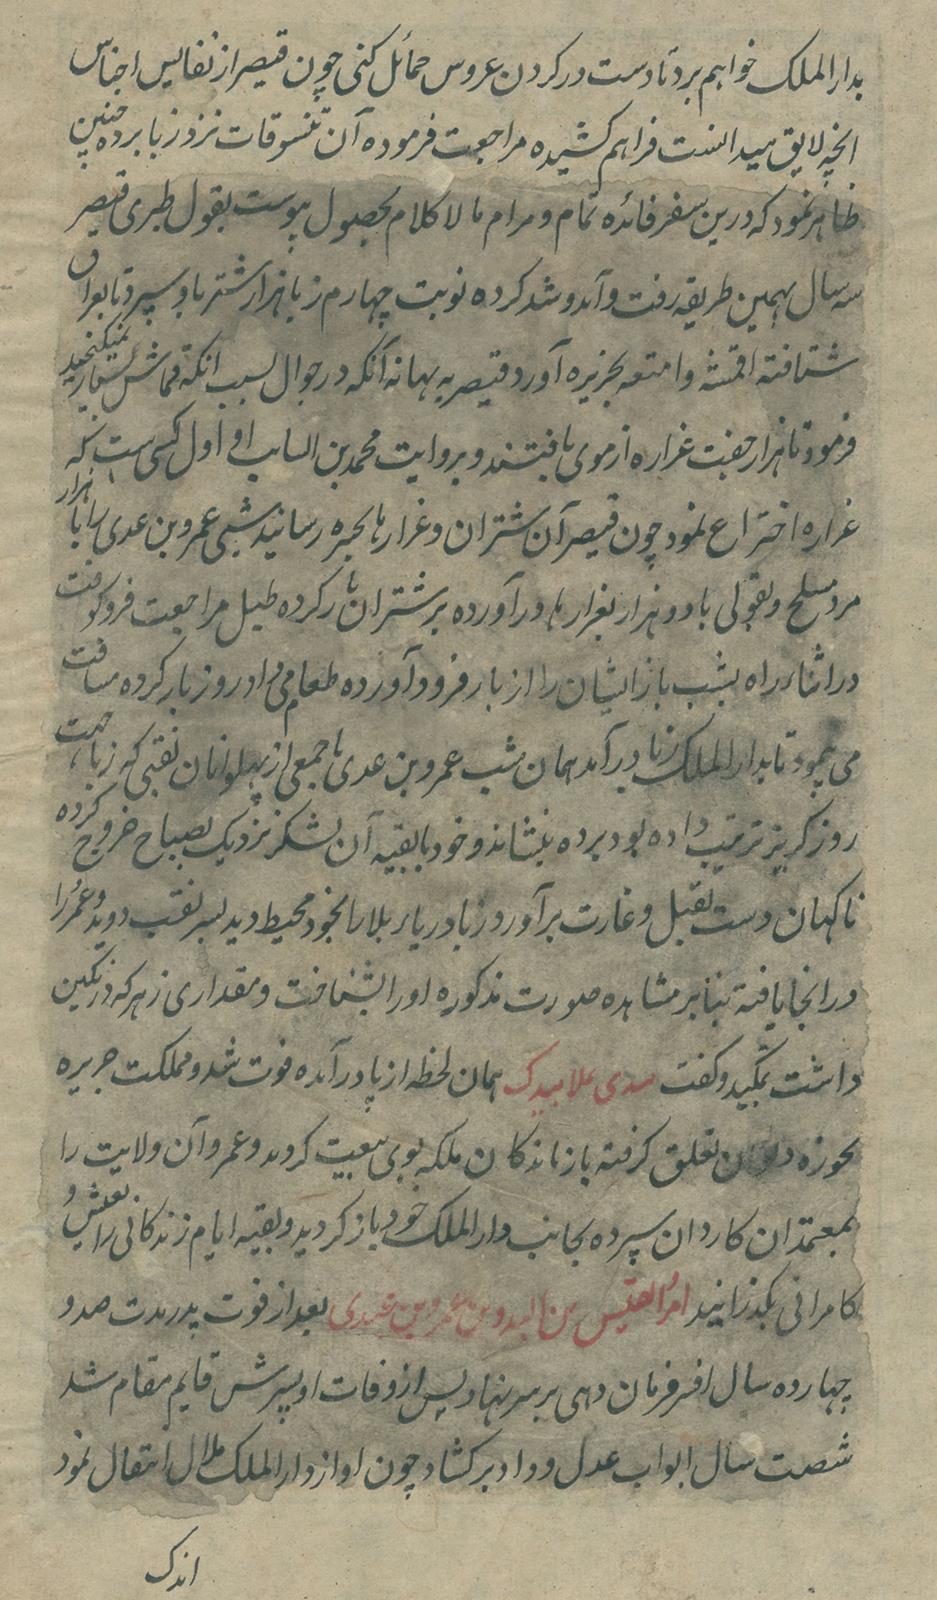 بدار الملک خواهم برد تا دست در کردن عروس حمائل کنی چون قیصر از نفایس اجناس
انچه لایق میدانست فراهم کشیده مراجعت فرموده آن تنسوقات نزد زبا برده چنین
ظاهر نمود که درین سفر فائده تمام و مرام ما لا کلام بحصول پیوست بقول طبری قیصر
سه سال بهمین طریقه رفت و آمد و شد کرده نوبت چهارم زبا هزار شتر باو سپرد تا بعراق
شتافته اقمشه و امتعه بجزیره آورد قیصر به بهانه آنکه در جوال بسبب انکه قماش بسیار نمیکنجید
فرمود تا هزار جفت غراره از موی بافتند و بروایت محمد بن السایب او اول کسی ست که
غراره اختراع نمود چون قیصر آن شتران و غرارها بحیره رسانید شبی عمرو بن عدی را با هزار
مرد مسلح و بقولی با دو هزار بغرارها در آورده بر شتران بار کرده طبل مراجعت فرو کوفت
در اثناء راه بشب باز ایشان را از بار فرود آورده طعام می داد و روز بار کرده مسافت
می پیمود تا بدار الملک زبا در آمد همان شب عمرو بن عدی با جمعی از پهلوانان نقبی که زبا جهت
روز کریز ترتیب داده بود برده بنشاند و خود با بقیه آن لشکر نزدیک بصباح خروج کرده
ناکهان دست بقتل و غارت برآورد زبا دریاء بلا را بخود محیط دید بسر نقب دوید و عمر را
در انجا یافته بنابر مشاهده صورت مذکوره او را بشناخت و مقداری زهر که در نکین
داشت بمکید و کفت بیدی لا بیدک همان لحظه از پا در آمده فوت شد و مملکت جزیره
بحوزه تعلق کرفته بازماندکان ملکه بوی بیعت کردند و عمرو آن ولایت را
بمعتمدان کاردان سپرده بجانب دار الملک خود باز کردید و بقیه ایام زندکانی را بعیش و
کامرانی بکذرانید امرؤ القیس بن عمرو بن عدی بعد از فوت پدر مدت صد و
چهارده سال افسر فرمان دهی بر سر نهاد پس از وفات او پسرش قایم مقام شد
شصت سال ابواب عدل و داد برکشاد چون او از دار الملک ملال انتقال نمود
اندک